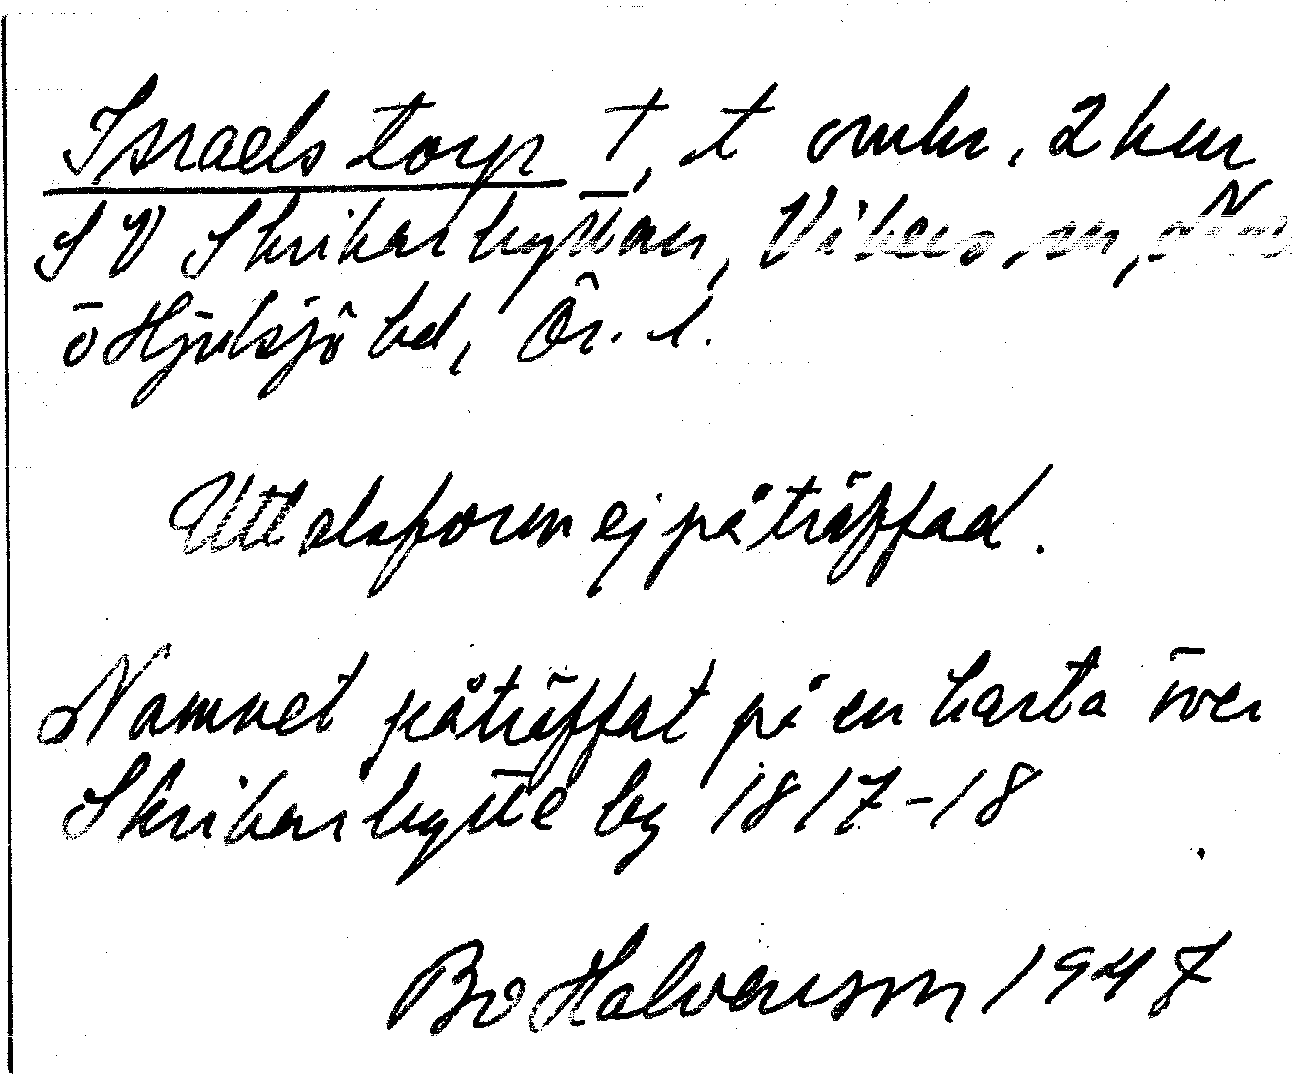 Israelstorp †, t omkr. 2 km
SV Skrikarhyttan, Vikers sn,
o Hjulsjö bd, Ör. l.
Uttalsform ej påträffad.
Namnet påträffat på en karta över
Skrikarhytte by 1817-18
Bo Halvarsson 1947